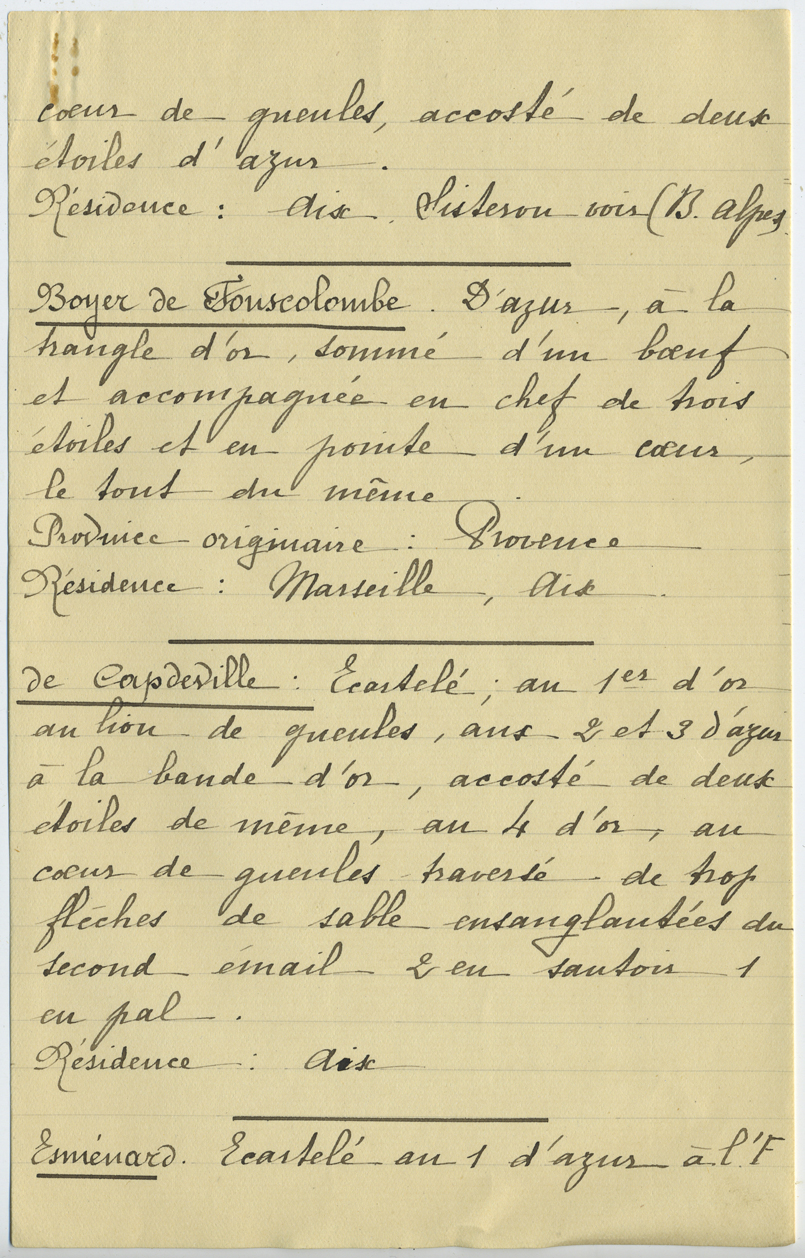 cœur de gueules, accosté de deux
étoiles d'azur.
Résidence : Aix. Sisteron voir (B. Alpes
Boyer de Fonscolombe. D'azur, à la
trangle d'or, sommé d'un bœuf
et accompagnée en chef de trois
étoiles et en pointe d'un cœur,
le tout du même.
Province originaire : Provence
Résidence : Marseille, Aix.
de Capdeville : Ecartelé ; au 1er d'or
au lion de gueules, aux 2 et 3 d'azur
à la bande d'or, accosté de deux
étoiles de même, au 4 d'or, au
cœur de gueules traversé de trop
flèches de sable ensanglantées du
second émail 2 en sautoir 1
en pal.
Résidence : Aix
Esménard. Ecartelé au 1 d'azur à l'F